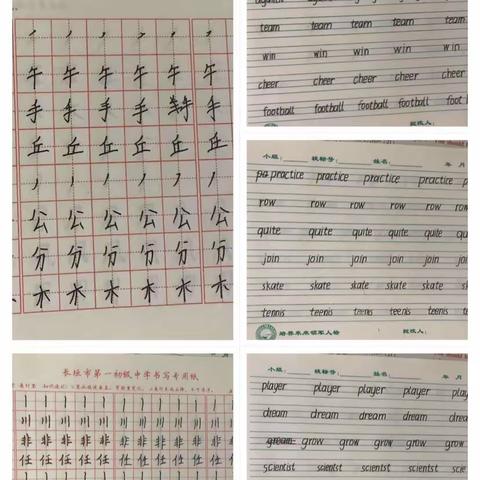 午 午 午 午 午 午
手 手 手 手 手
丘 丘 丘 丘 丘 丘
公 公 公 公 公 公
分 分 分 分 分 分
木 木 木 木 木 木
team team team team
win win win win
cheer cheer cheer cheer
football football football football foot
小组: 姓名: 年 月
pa practice practice practice practice p
row row row row row row
quite quite quite quite quite
join join join join join join
skate skate skate skate skate
tennis teenis teenis teenis teenis
培养未来领军人物 批改人:
长垣市第一初级中学书写专用纸
川 川 川 川 川 川 川 川 川
非 非 非 非 非 非 非 非 非
任 任 任 任 任 任 任 任 任
小组: 姓名: 年 月
player player player player
dream dream dream dream
gream grow grow grow grow
scientist scientst scientst scientst